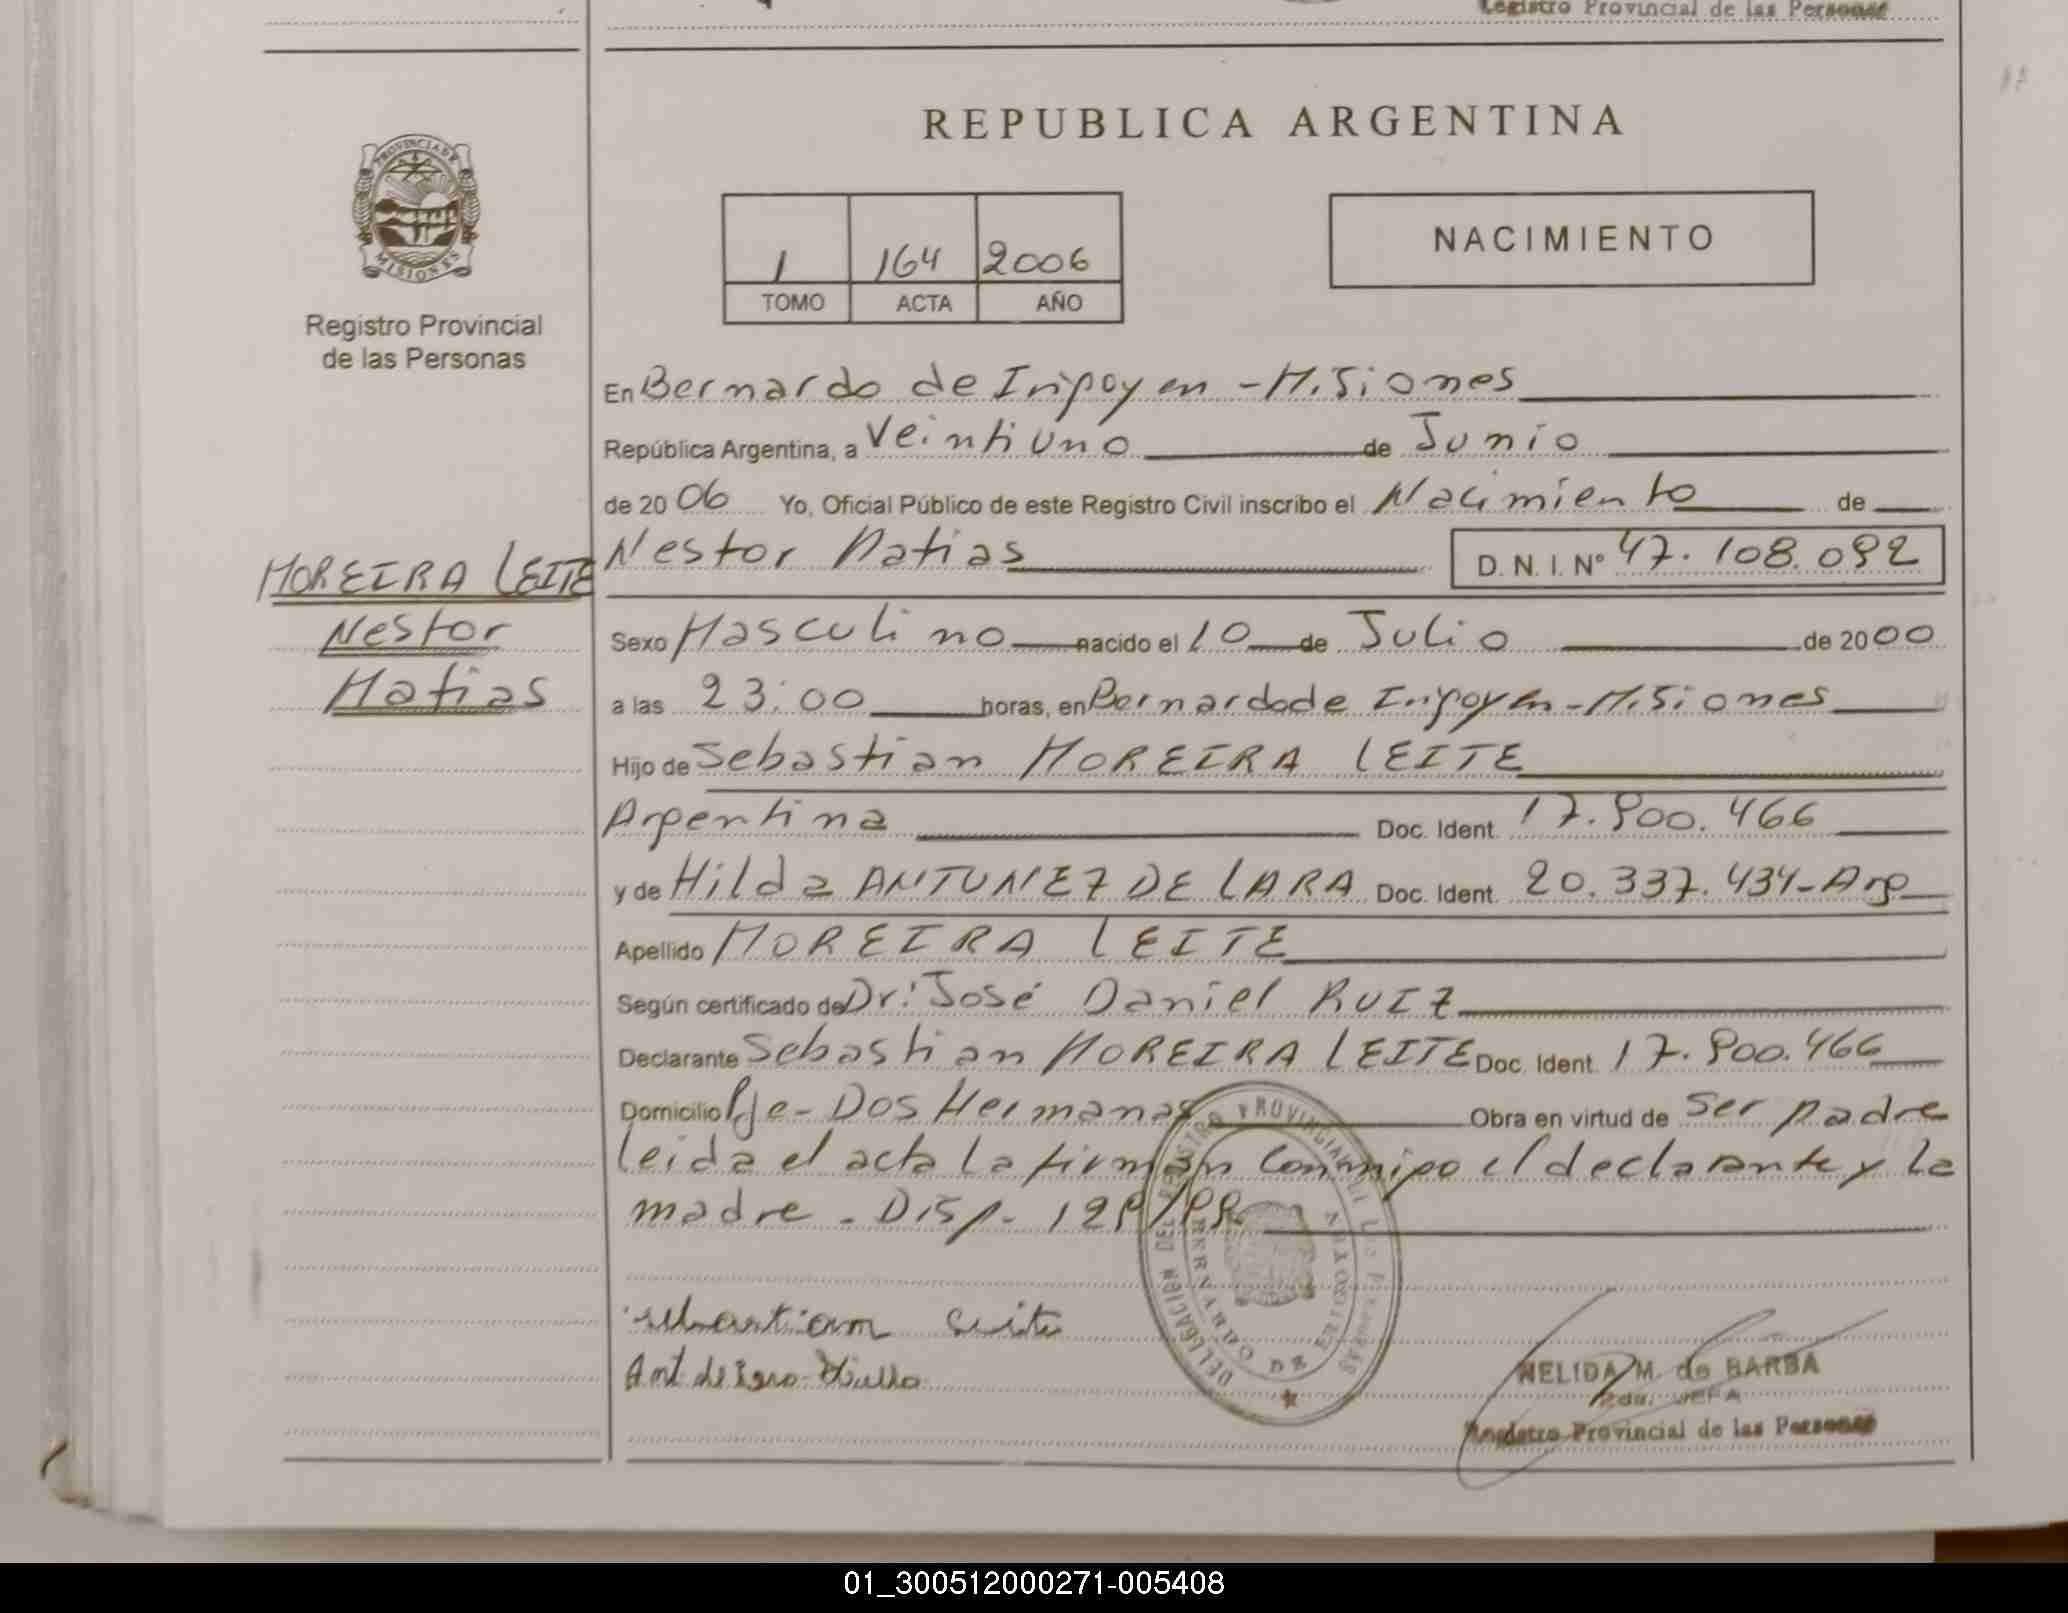 Registro Provincial de las Personas
REPUBLICA ARGENTINA
PROVINCIA DE
MISIONES
Registro Provincial
de las Personas
1 164 2006
TOMO ACTA AÑO
NACIMIENTO
En Bernardo de Irigoyen - Misiones
República Argentina, a Veintiuno de Junio
de 2006 Yo, Oficial Público de este Registro Civil inscribo el Nacimiento de
MOREIRA LEITE
Nestor
Matias
Nestor Matias D. N. I. Nº 47.108.092
Sexo Masculino nacido el 10 de Julio de 2000
a las 23:00 horas, en Bernardo de Irigoyen - Misiones
Hijo de Sebastian MOREIRA LEITE
Argentina Doc. Ident. 17.900.466
y de Hilda ANTUNEZ DE LARA Doc. Ident. 20.337.434 - Arg
Apellido MOREIRA LEITE
Según certificado de Dr: José Daniel RUIZ
Declarante Sebastian MOREIRA LEITE Doc. Ident. 17.900.466
Domicilio Pje - Dos Hermanas Obra en virtud de ser padre
leida el acta la firman conmigo el declarante y la
madre - Disp - 129/99
DELEGACION DEL REGISTRO PROVINCIAL DE LAS PERSONAS
BERNARDO DE IRIGOYEN
sebastiam leite
NELIDA M. de BARBA
JEFA
Registro Provincial de las Personas
01_300512000271-005408